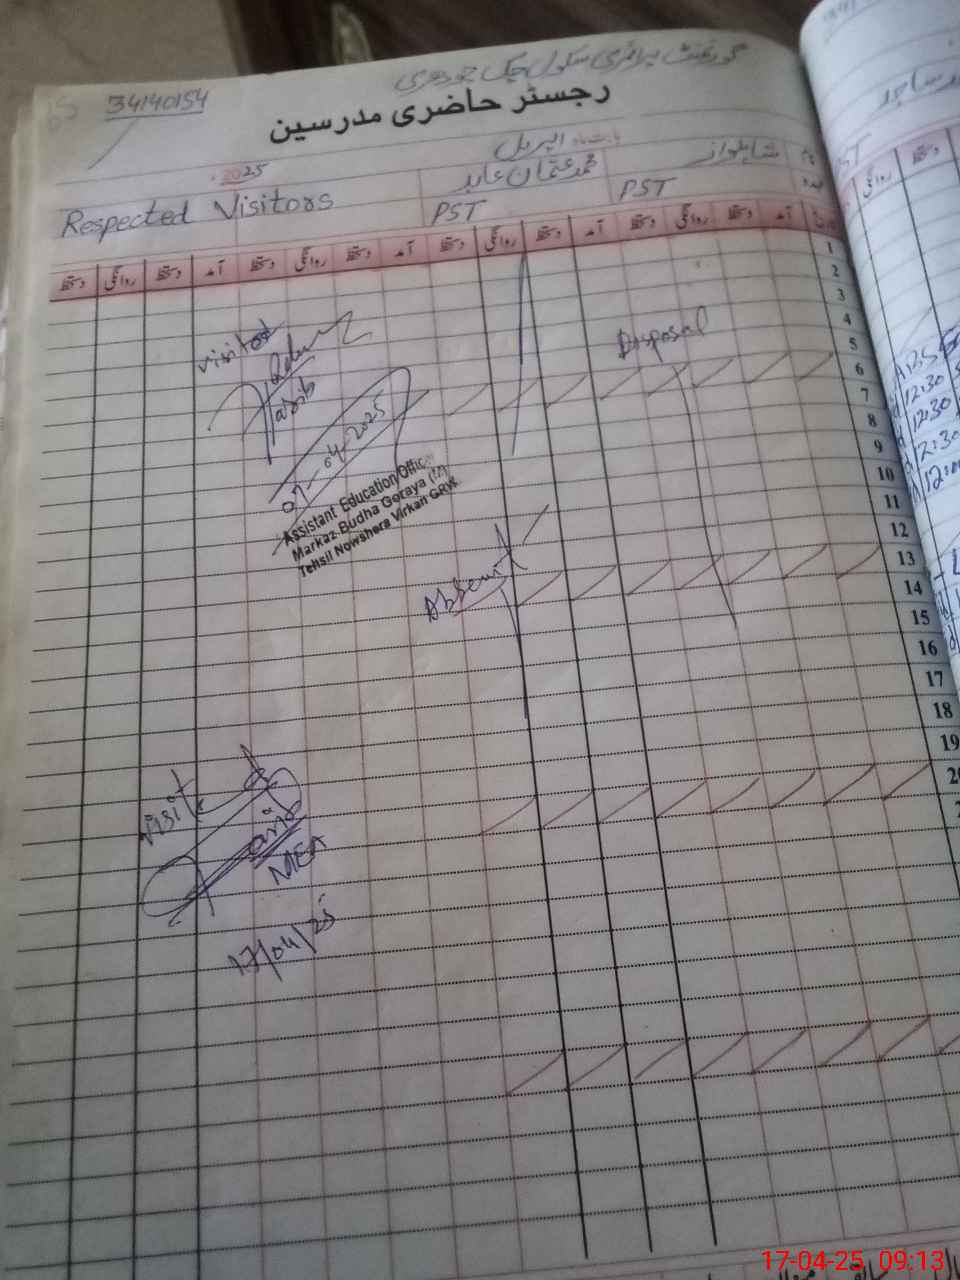 34140154
گورنمنٹ پرائمری سکول چک چوہدری
رجسٹر حاضری مدرسین
بابت ماہ اپریل
2025
نام شاہنواز
محمد عثمان عابد
Respected Visitors
PST
PST
عہدہ
دستخط روانگی دستخط آمد دستخط روانگی دستخط آمد دستخط روانگی دستخط آمد دستخط روانگی دستخط آمد
1
2
3
4
5
6
7
8
9
10
11
12
13
14
15
16
17
18
19
20
Disposal
visited
Habib
07-04-2025
Assistant Education Officer
Markaz Budha Goraya (M)
Tehsil Nowshera Virkan GRW
Absent
visit
MEA
17/04/25
PST
روانگی دستخط
12:30
12:30
12:30
17-04-25 09:13